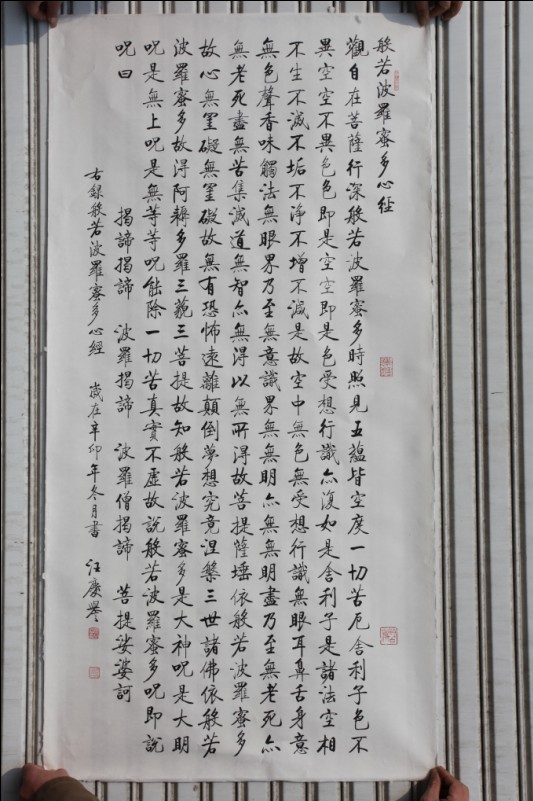 般若波羅蜜多心經
觀自在菩薩行深般若波羅蜜多時照見五蘊皆空度一切苦厄舍利子色不
異空空不異色色即是空空即是色受想行識亦復如是舍利子是諸法空相
不生不滅不垢不淨不增不減是故空中無色無受想行識無眼耳鼻舌身意
無色聲香味觸法無眼界乃至無意識界無無明亦無無明盡乃至無老死亦
無老死盡無苦集滅道無智亦無得以無所得故菩提薩埵依般若波羅蜜多
故心無罣礙無罣礙故無有恐怖遠離顛倒夢想究竟涅槃三世諸佛依般若
波羅蜜多故得阿耨多羅三藐三菩提故知般若波羅蜜多是大神呪是大明
呪是無上呪是無等等呪能除一切苦真實不虛故說般若波羅蜜多呪即說
呪曰
揭諦揭諦 波羅揭諦 波羅僧揭諦 菩提娑婆訶
右錄般若波羅蜜多心經 歲在辛卯年冬月書 汪慶誉